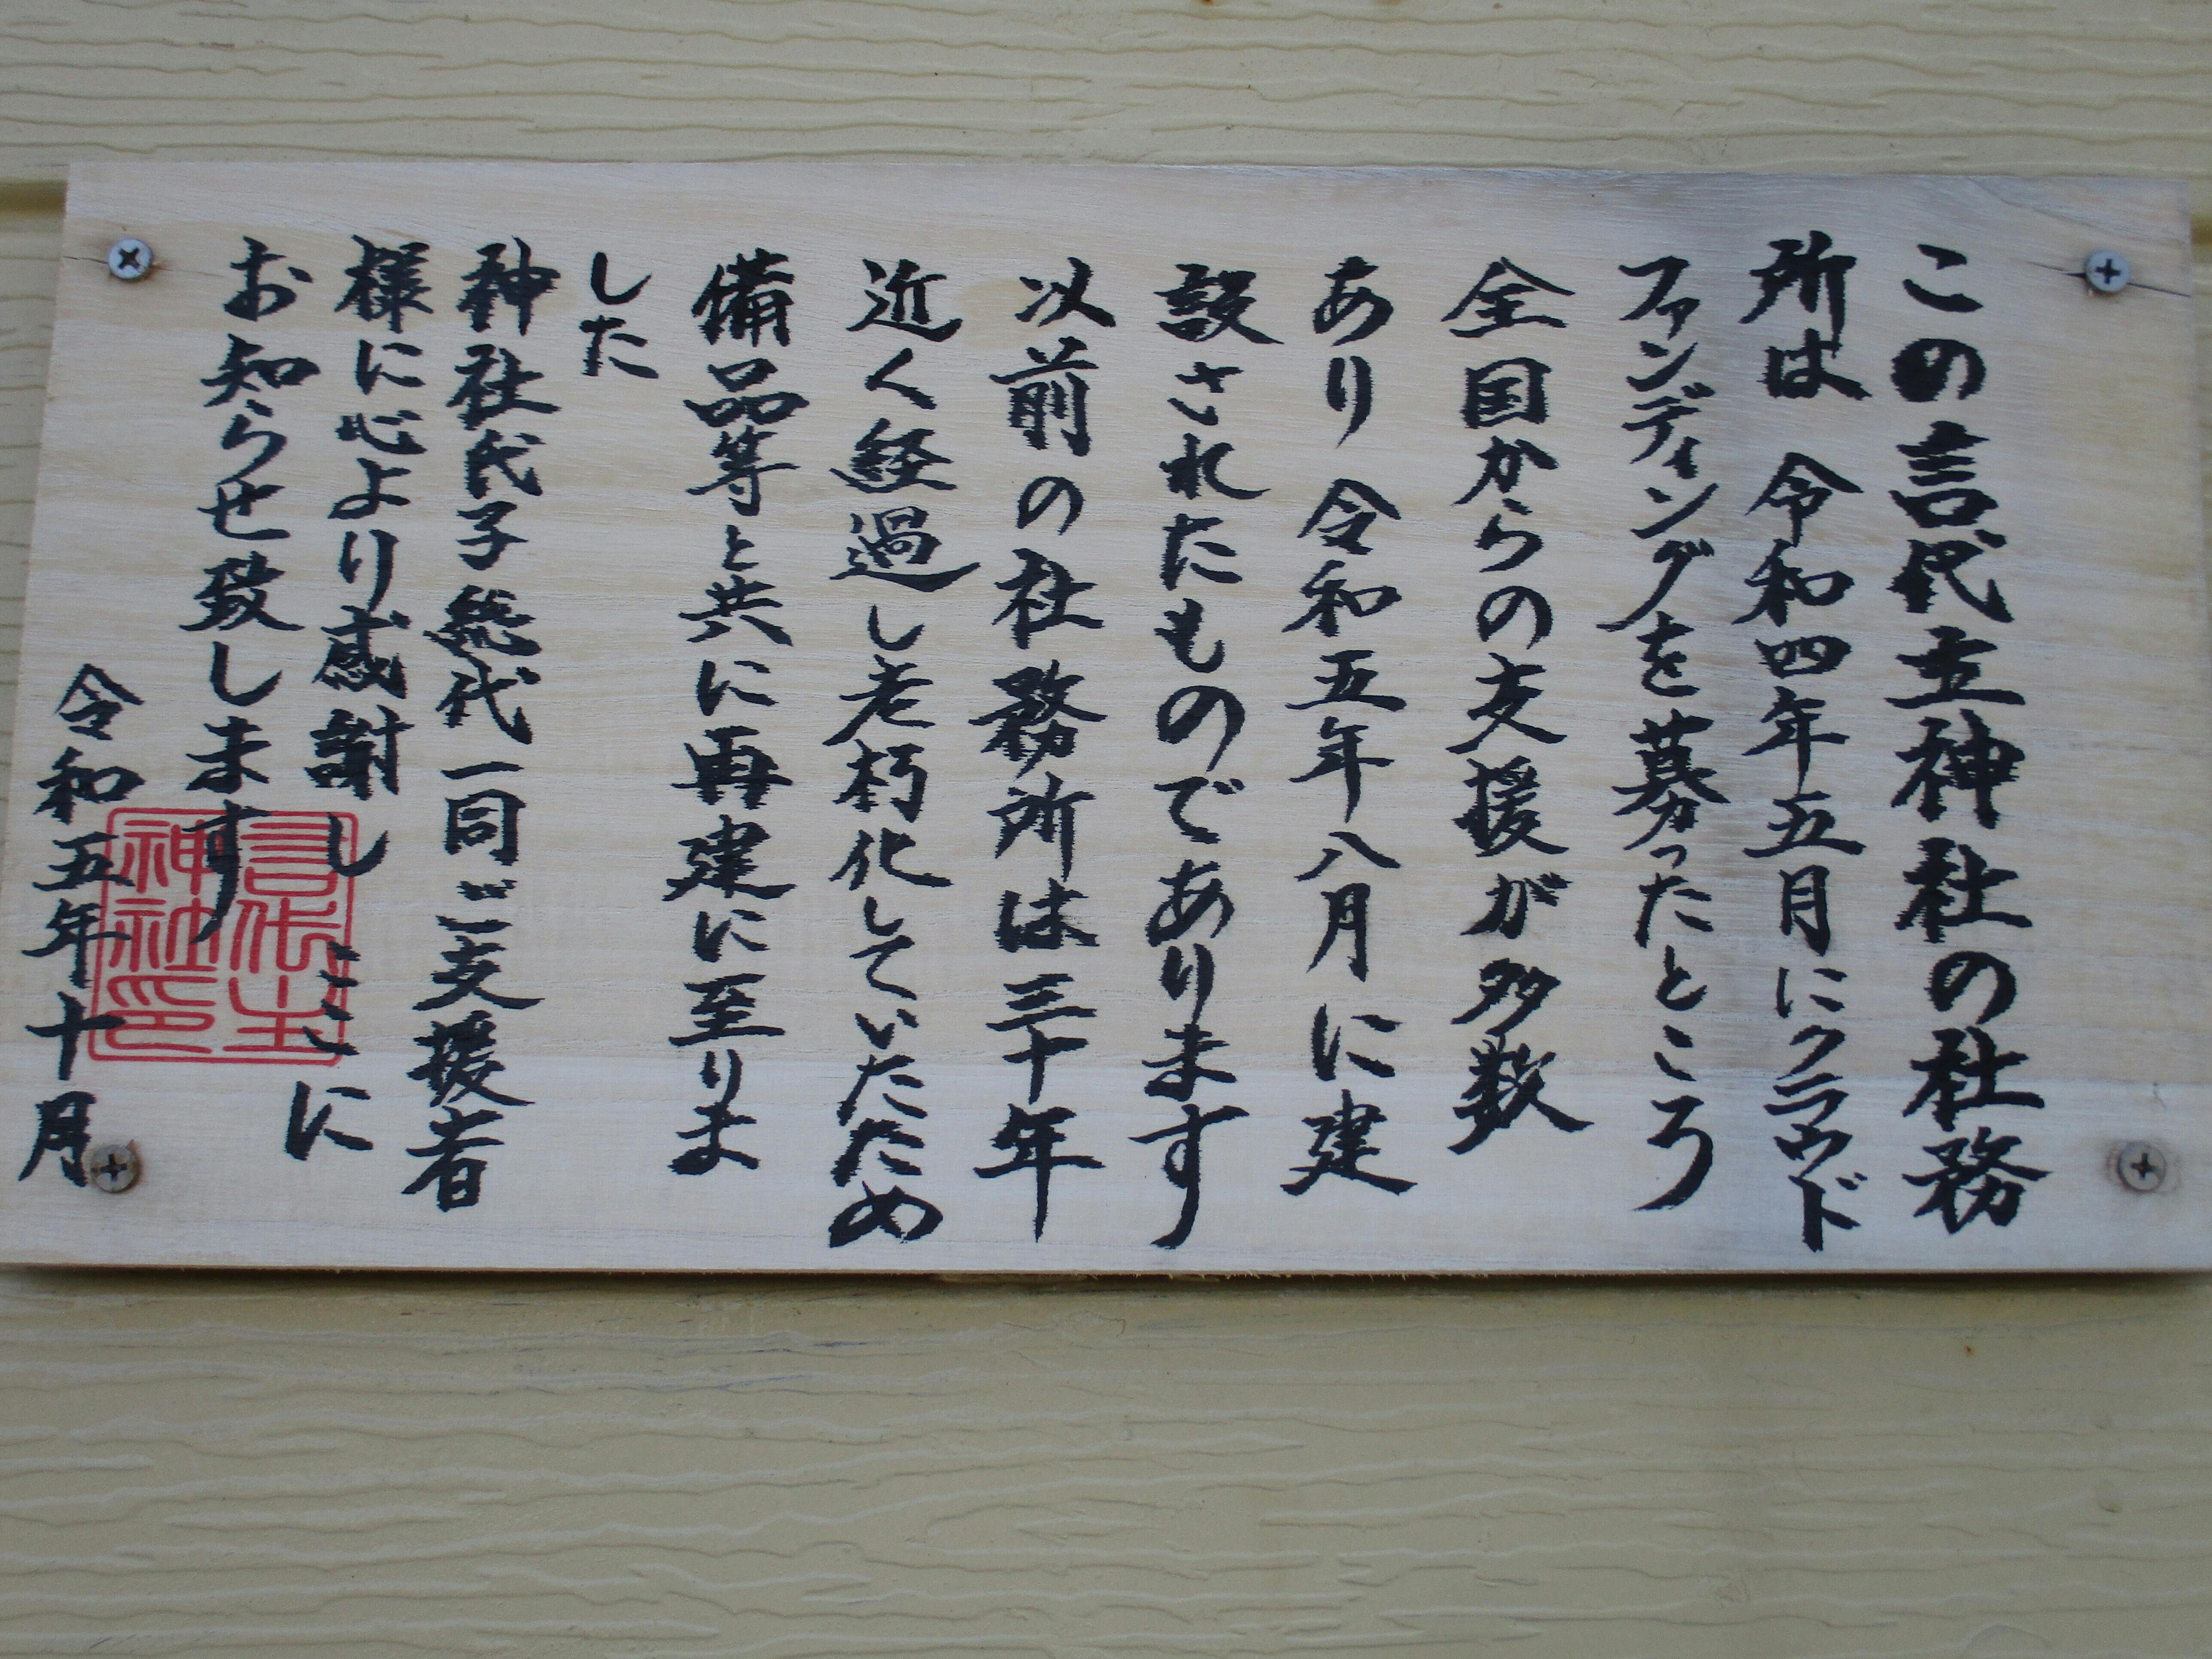 この言代主神社の社務
所は 令和四年五月にクラウド
ファンディングを募ったところ
全国からの支援が多数
あり令和五年八月に建
設されたものであります
以前の社務所は三十年
近く経過し老朽化していたため
備品等と共に再建に至りま
した
神社氏子総代一同ご支援者
様に心より感謝し ここに
お知らせ致します
令和五年十月
言代主
神社印